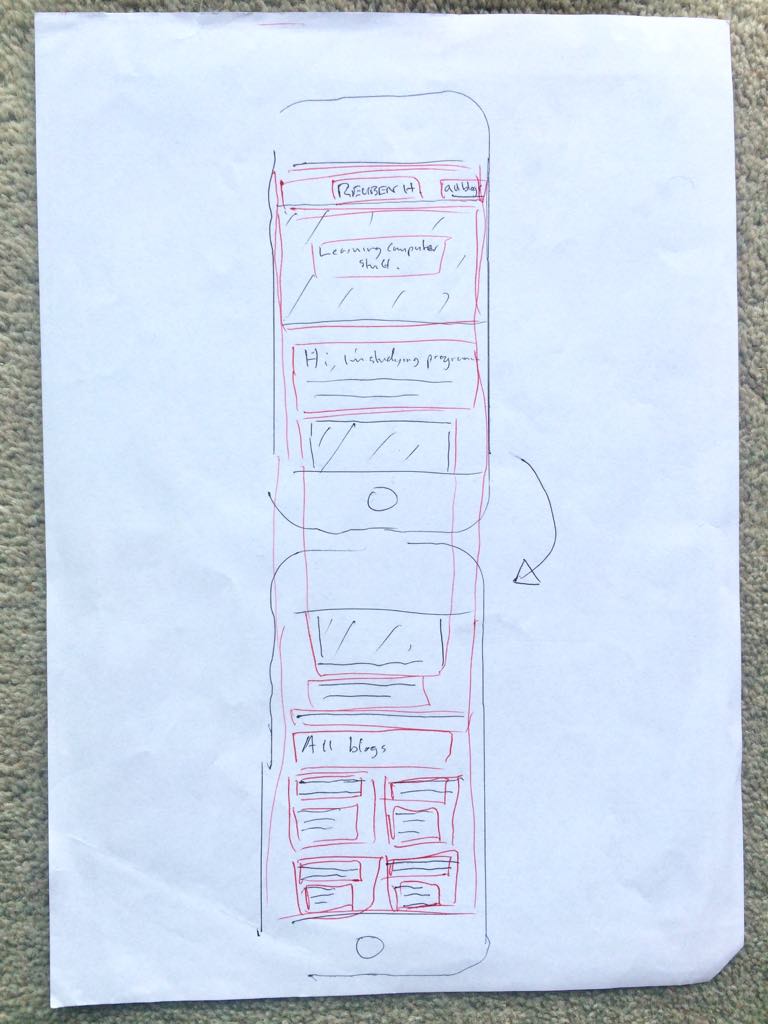 REUBEN H
all blogs
Learning computer
stuff.
Hi, I'm studying program
All blogs